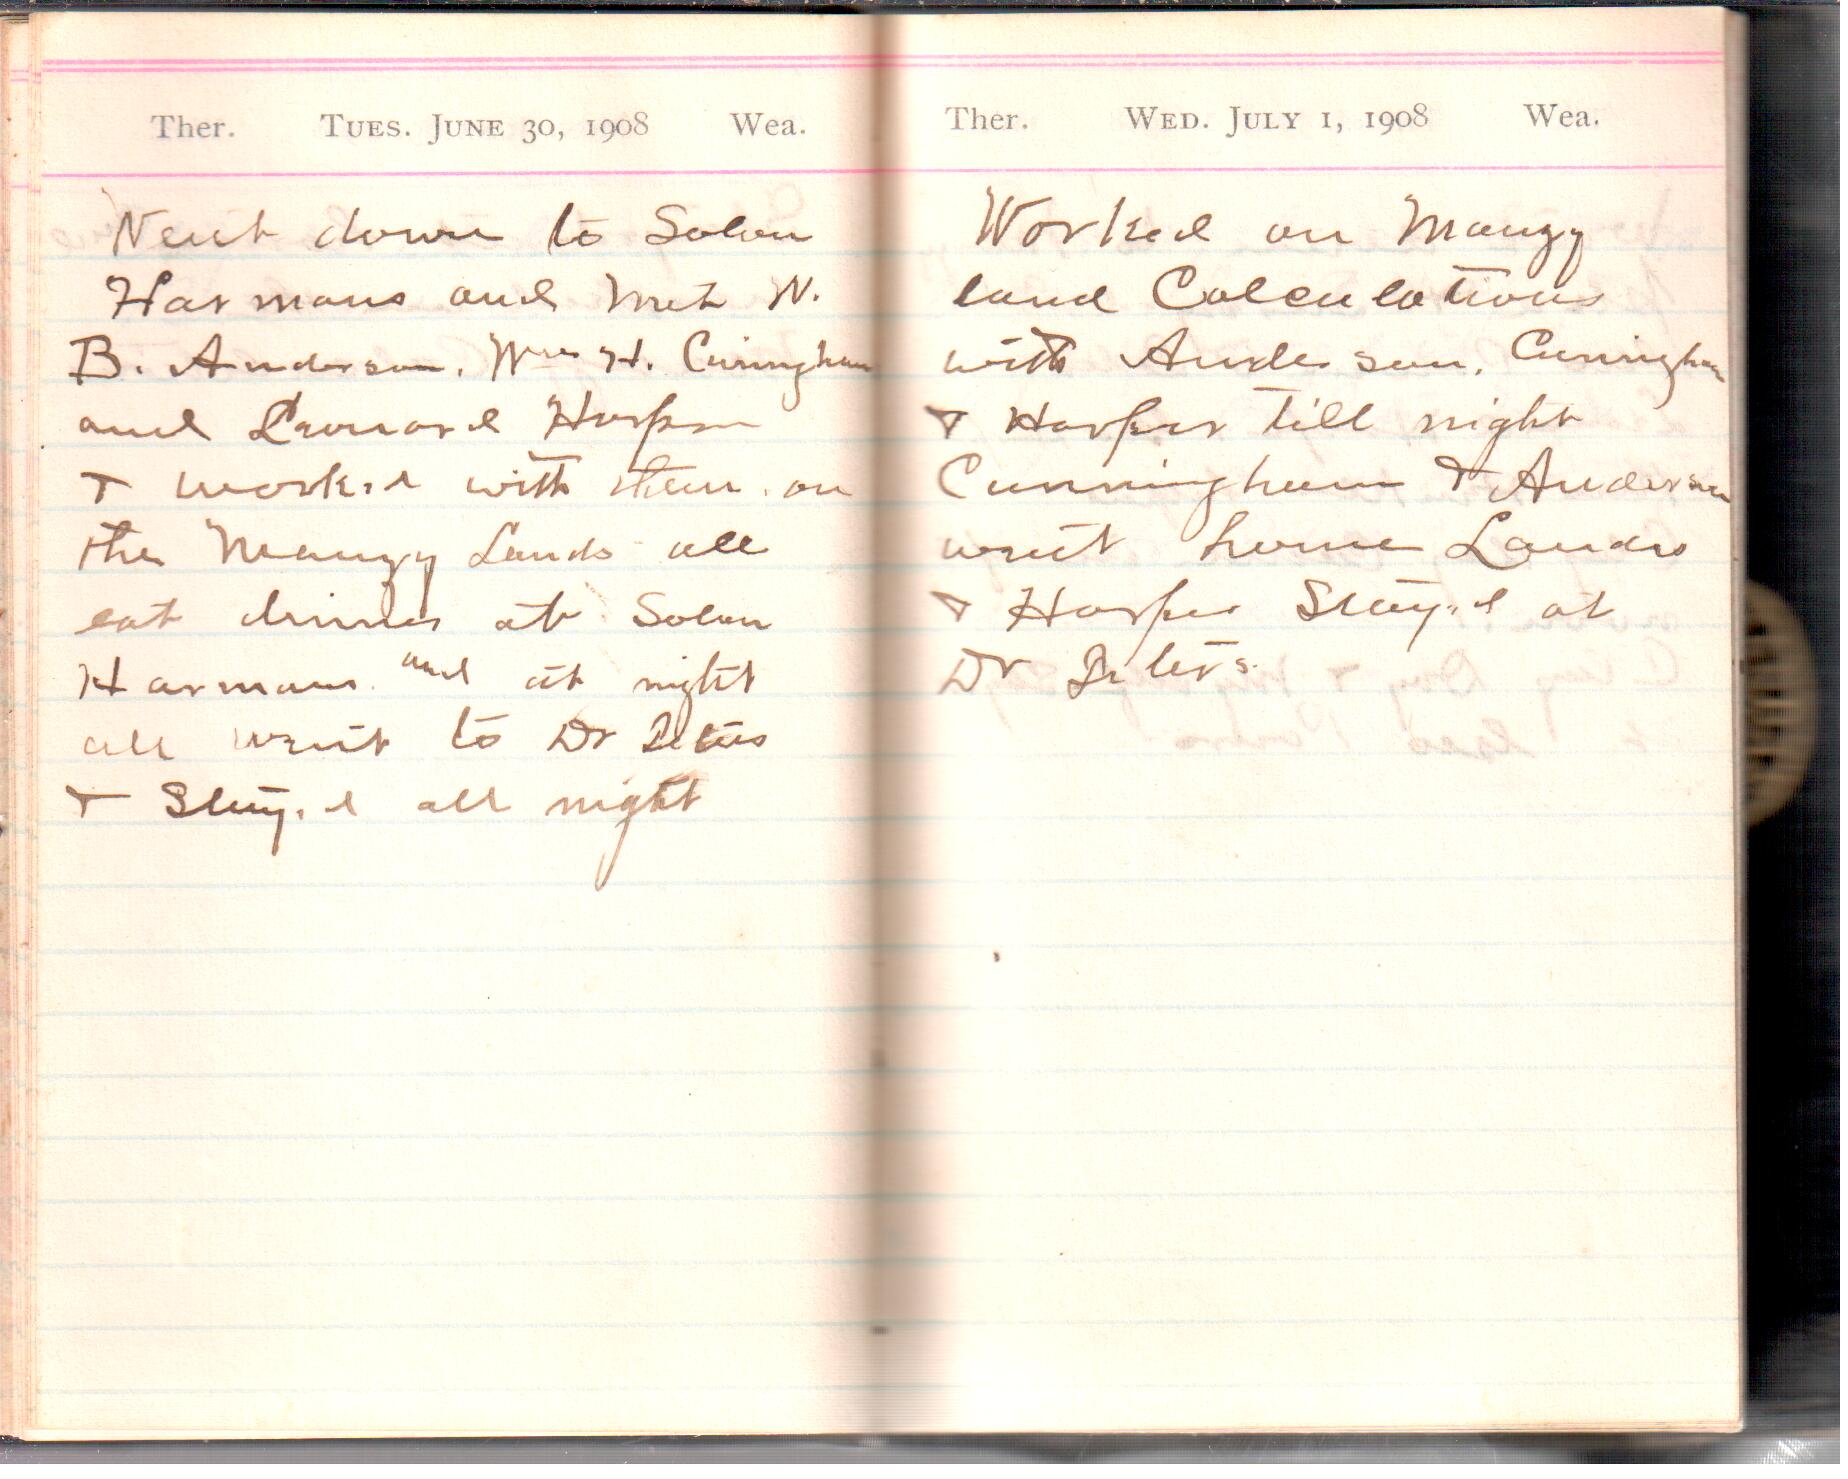 Ther. Tues. June 30, 1908 Wea.
Went down to Solon
Harmans and Met W.
B. Anderson, Wm H. Cuningham
and Leonard Harper
& worked with them on
the Mauzy Lands all
eat dinner at Solon
Harmans and at night
all went to Dr
& Stayed all night
Ther. Wed. July 1, 1908 Wea.
Worked on Mauzy
land Calculations
with Anderson, Cuningham
& Harper till night
Cunningham & Anderson
went home Landis
& Harper Stayed at
Dr